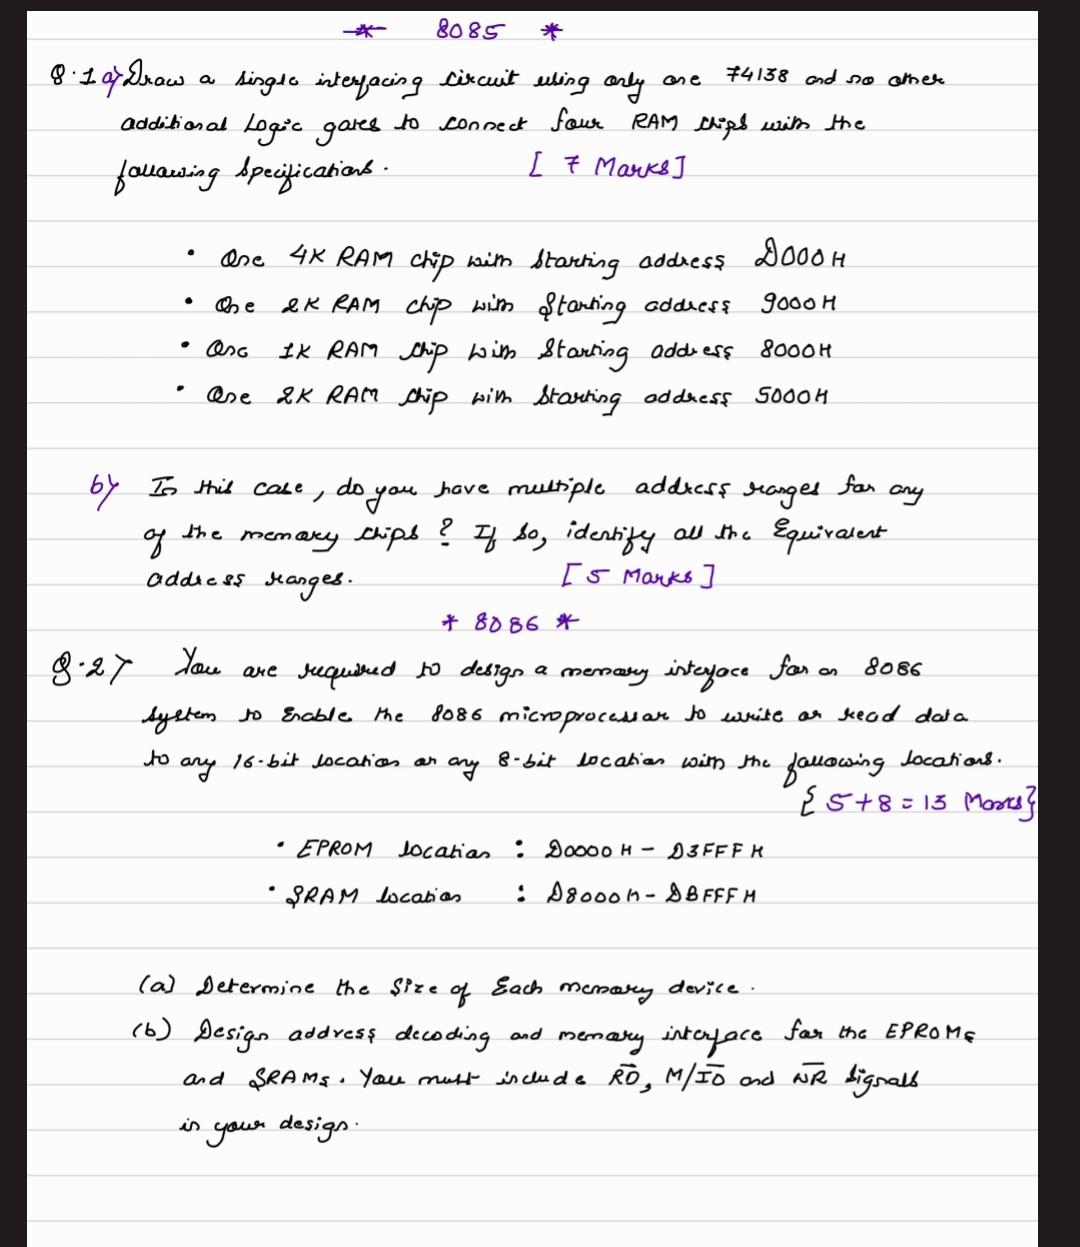 * 8085 *
Q.1 a) Draw a single interfacing circuit using only one 74138 and no other
additional Logic gates to connect four RAM chips with the
following specifications. [ 7 Marks ]
• One 4K RAM chip with starting address D000H
• One 2K RAM chip with Starting address 9000H
• One 1K RAM chip with Starting address 8000H
• One 2K RAM chip with starting address 5000H
b) In this case, do you have multiple address ranges for any
of the memory chips ? If so, identify all the Equivalent
address ranges. [ 5 Marks ]
* 8086 *
Q.2) You are required to design a memory interface for an 8086
system to Enable the 8086 microprocessor to write or read data
to any 16-bit location or any 8-bit location with the following locations.
{ 5+8 = 13 Marks }
• EPROM location : D0000 H - D3FFF H
• SRAM location : D8000 H - DBFFF H
(a) Determine the Size of Each memory device.
(b) Design address decoding and memory interface for the EPROMs
and SRAMs. You must include R̅D̅, M/I̅O̅ and W̅R̅ signals
in your design.